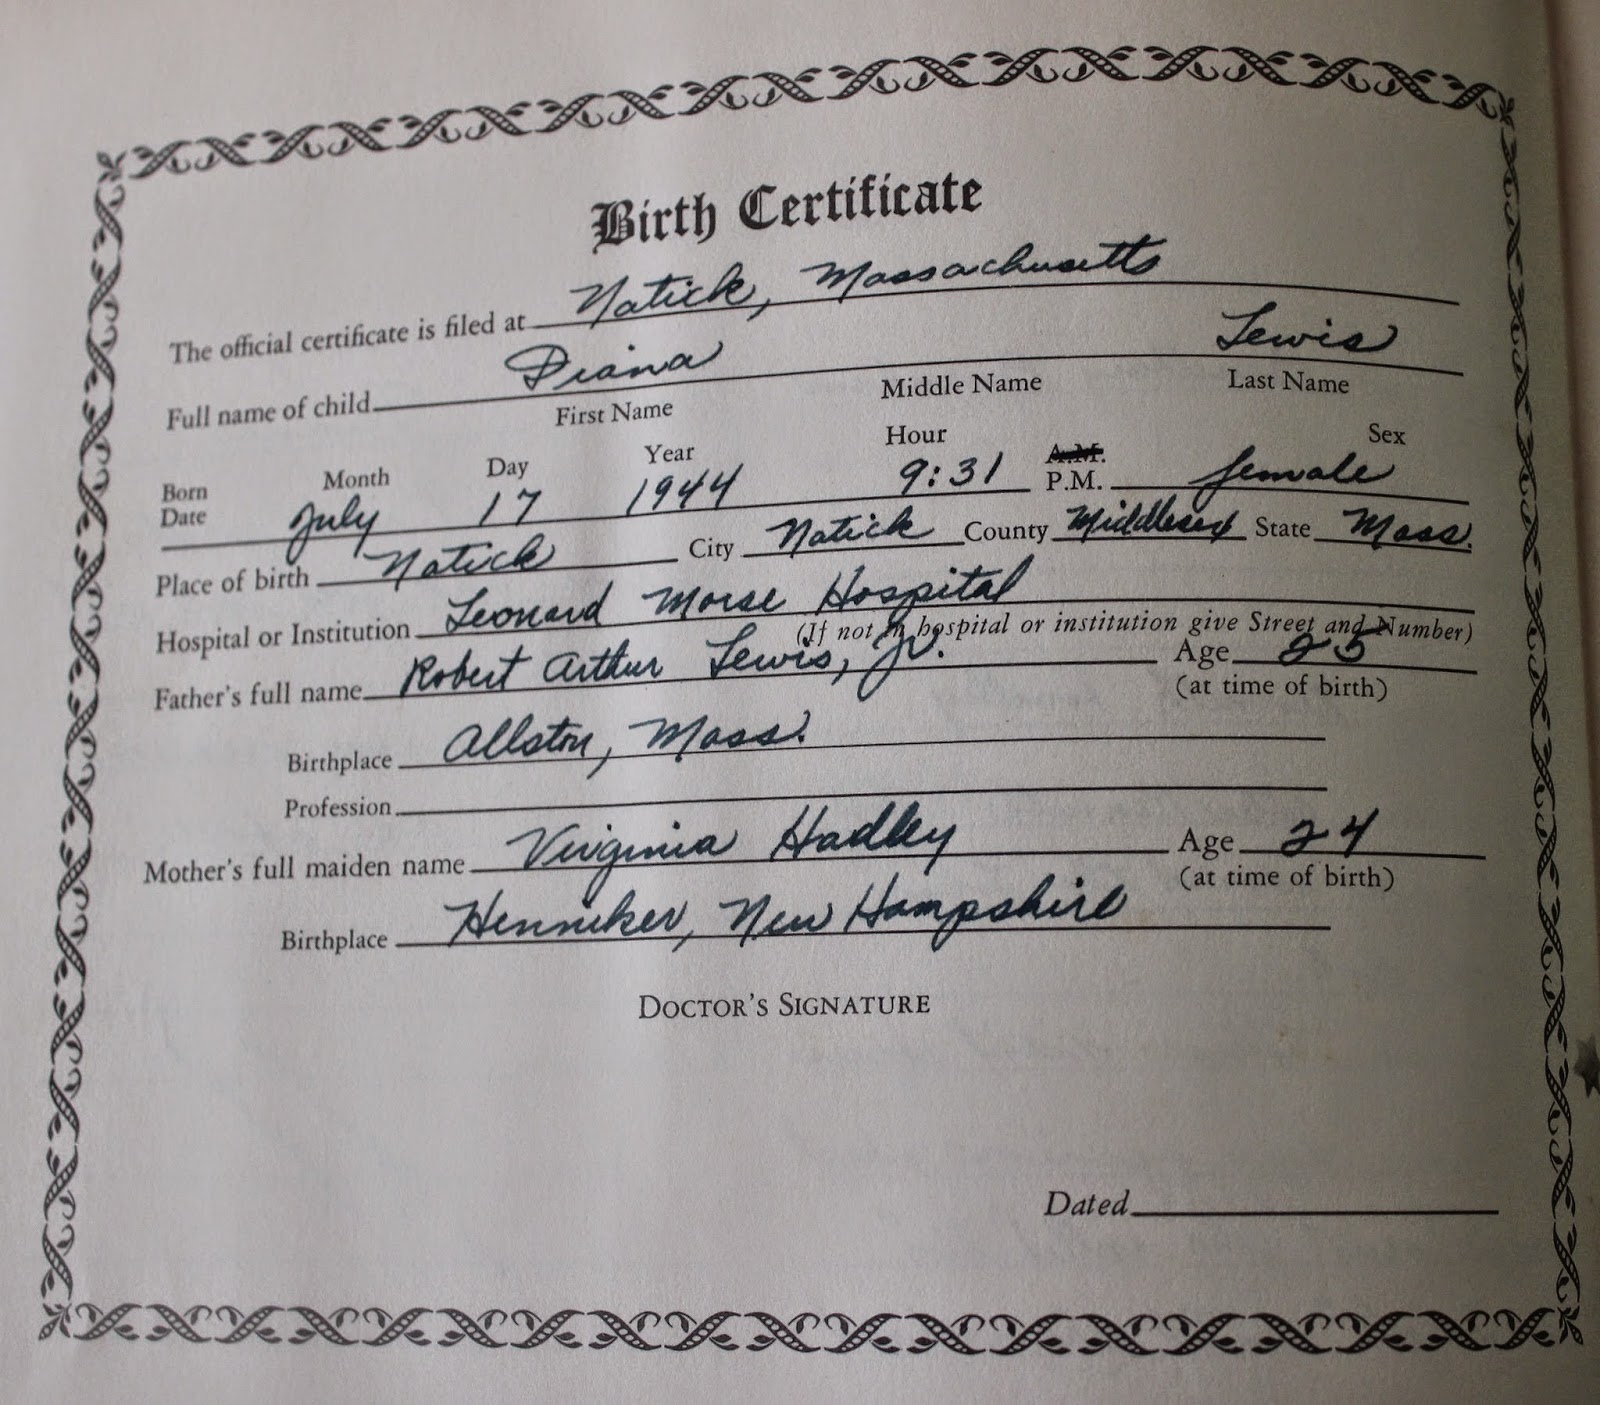 Birth Certificate
The official certificate is filed at Natick, Massachusetts
Full name of child Diana Lewis
First Name Middle Name Last Name
Month Day Year Hour A.M. Sex
Born Date July 17 1944 9:31 P.M. female
Place of birth Natick City Natick County Middlesex State Mass.
Hospital or Institution Leonard Morse Hospital
(If not in hospital or institution give Street and Number)
Father's full name Robert Arthur Lewis, Jr. Age 25
(at time of birth)
Birthplace Allston, Mass.
Profession
Mother's full maiden name Virginia Hadley Age 24
(at time of birth)
Birthplace Henniker, New Hampshire
DOCTOR'S SIGNATURE
Dated